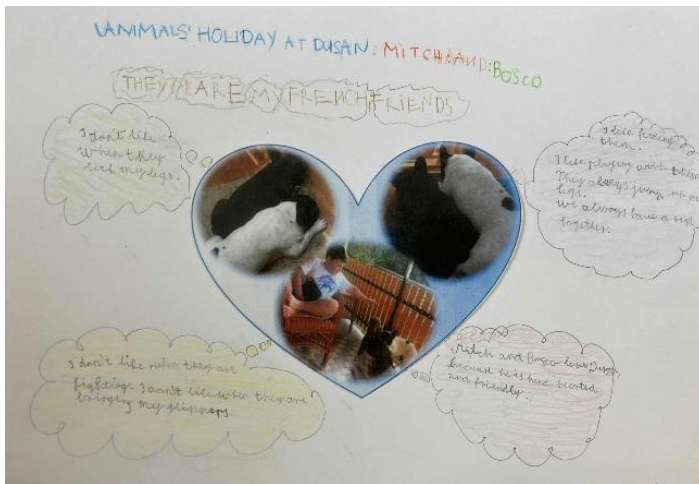 ANIMALS' HOLIDAY AT DUSAN: MITCH AND: BOSCO
THEY ARE MY FRENCH FRIENDS
I don't like
when they
lick my legs.
I like feeding
them.
I like playing with them.
They always jump on my
legs.
We always have a rest
together.
I don't like when they are
fighting. I don't like when they are
bringing my slippers.
Mitch and Bosco love
because he is
and friendly.